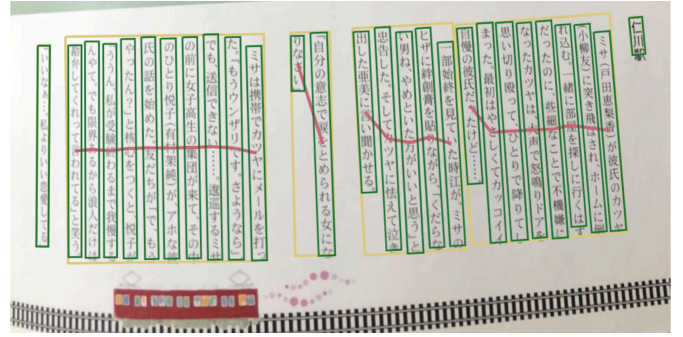 仁川駅
ミサ(戸田恵梨香)が彼氏のカツヤ
(小柳友)に突き飛ばされ、ホームに倒
れ込む。一緒に部屋を探しに行くはず
だったのに、些細なことで不機嫌に
なったカツヤは、大声で怒鳴りドアを
思い切り殴って、ひとりで降りてし
まった。最初はやさしくてカッコイイ
自慢の彼氏だったけど……
一部始終を見ていた時江が、ミサの
ヒザに絆創膏を貼りながら、「くだらな
い男ね。やめといたほうがいいと思う」と
忠告した。そしてカツヤに怯えて泣き
出した亜美に言い聞かせる。
自分の意志で涙をとめられる女にな
りなさい
ミサは携帯でカツヤにメールを打っ
た。「もうウンザリです。さようなら」
でも、送信できない……。逡巡するミサ
の前に女子高生の集団が来て、その中
のひとり悦子(有村架純)が、アホな彼
氏の話を始めた。友だちが「で、もう
やったん?」と核心をつくと、悦子が
「ううん。私が受験終わるまで我慢する
んやて。でも限界来るから浪人だけは
勘弁してくれって言われてる」と笑う
いいなぁ…私よりいい恋愛してる